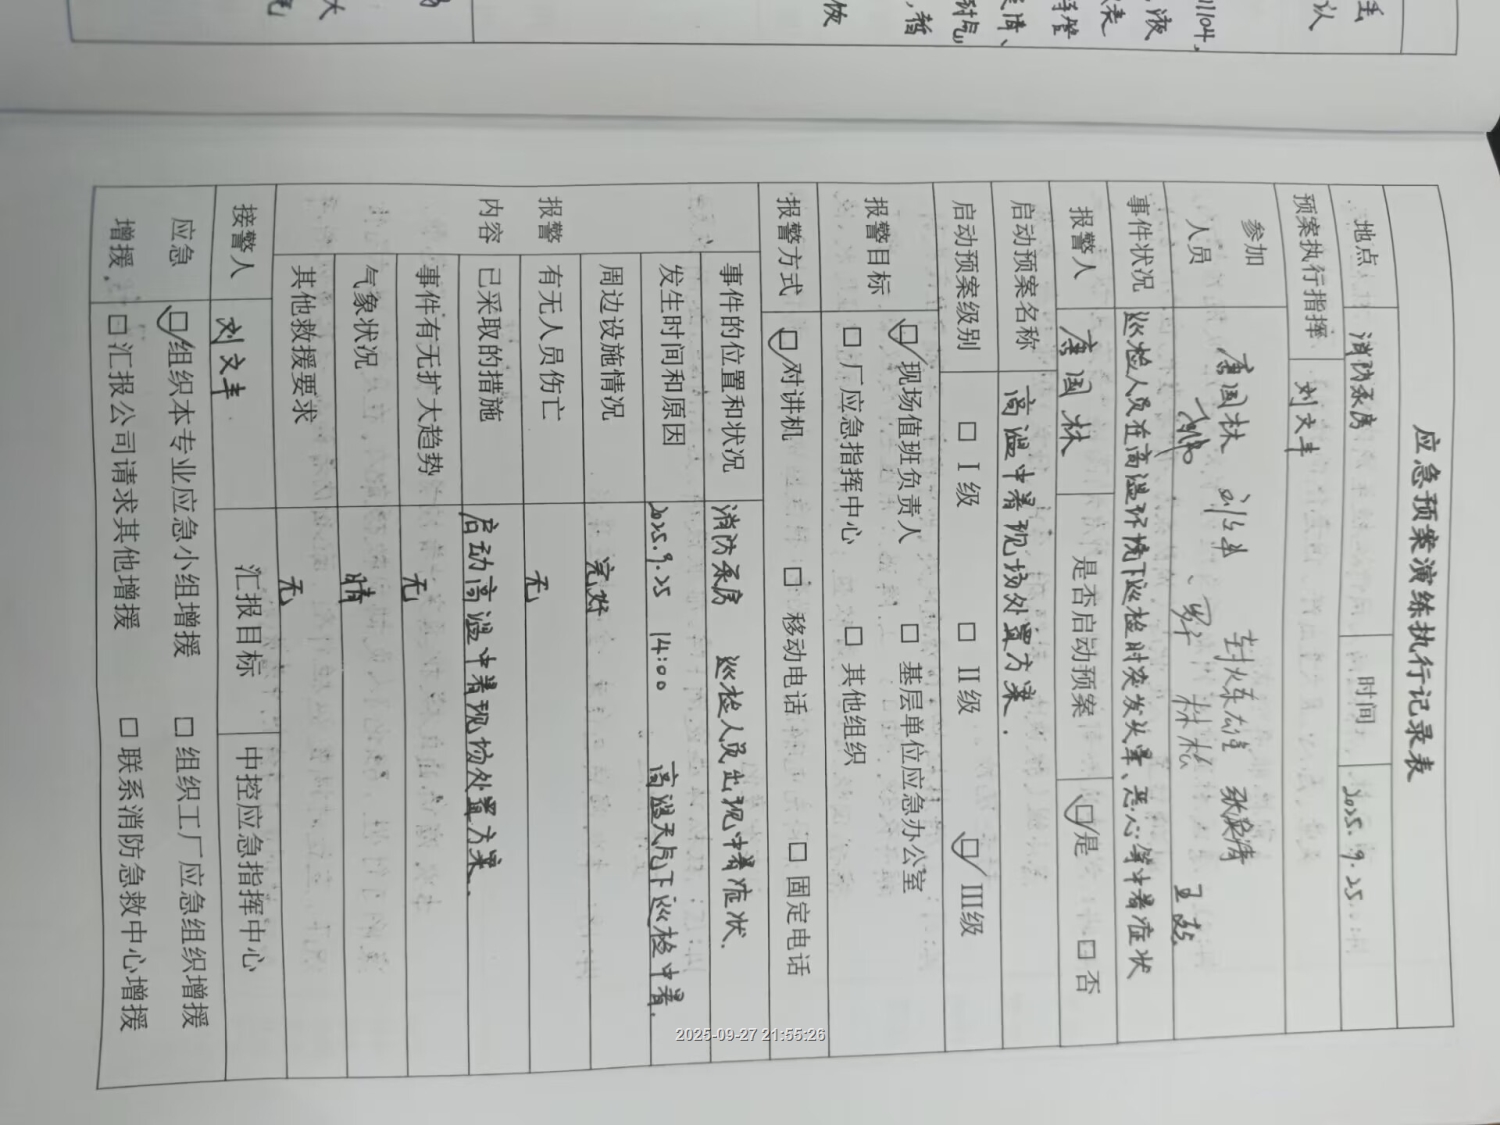 应急预案演练执行记录表
地点 消防泵房 时间 2025.9.25
预案执行指挥 刘文丰
参加人员 唐国林 刘文丰 张奥清
林松 王喆
事件状况 巡检人员在高温环境下巡检时突发头晕、恶心等中暑症状
报警人 唐国林 是否启动预案 ☑是 □否
启动预案名称 高温中暑现场处置方案.
启动预案级别 □ I级 □ II级 ☑ III级
报警目标 ☑现场值班负责人 □ 基层单位应急办公室
□ 厂应急指挥中心 □ 其他组织
报警方式 ☑对讲机 □ 移动电话 □ 固定电话
报警内容
事件的位置和状况 消防泵房 巡检人员出现中暑症状.
发生时间和原因 2025.9.25 14:00 高温天气下巡检中暑.
周边设施情况 完好
有无人员伤亡 无
已采取的措施 启动高温中暑现场处置方案.
事件有无扩大趋势 无
气象状况 晴
其他救援要求 无
接警人 刘文丰 汇报目标 中控应急指挥中心
应急增援 ☑组织本专业应急小组增援 □ 组织工厂应急组织增援
□汇报公司请求其他增援 □ 联系消防急救中心增援
2025-09-27 21:55:26